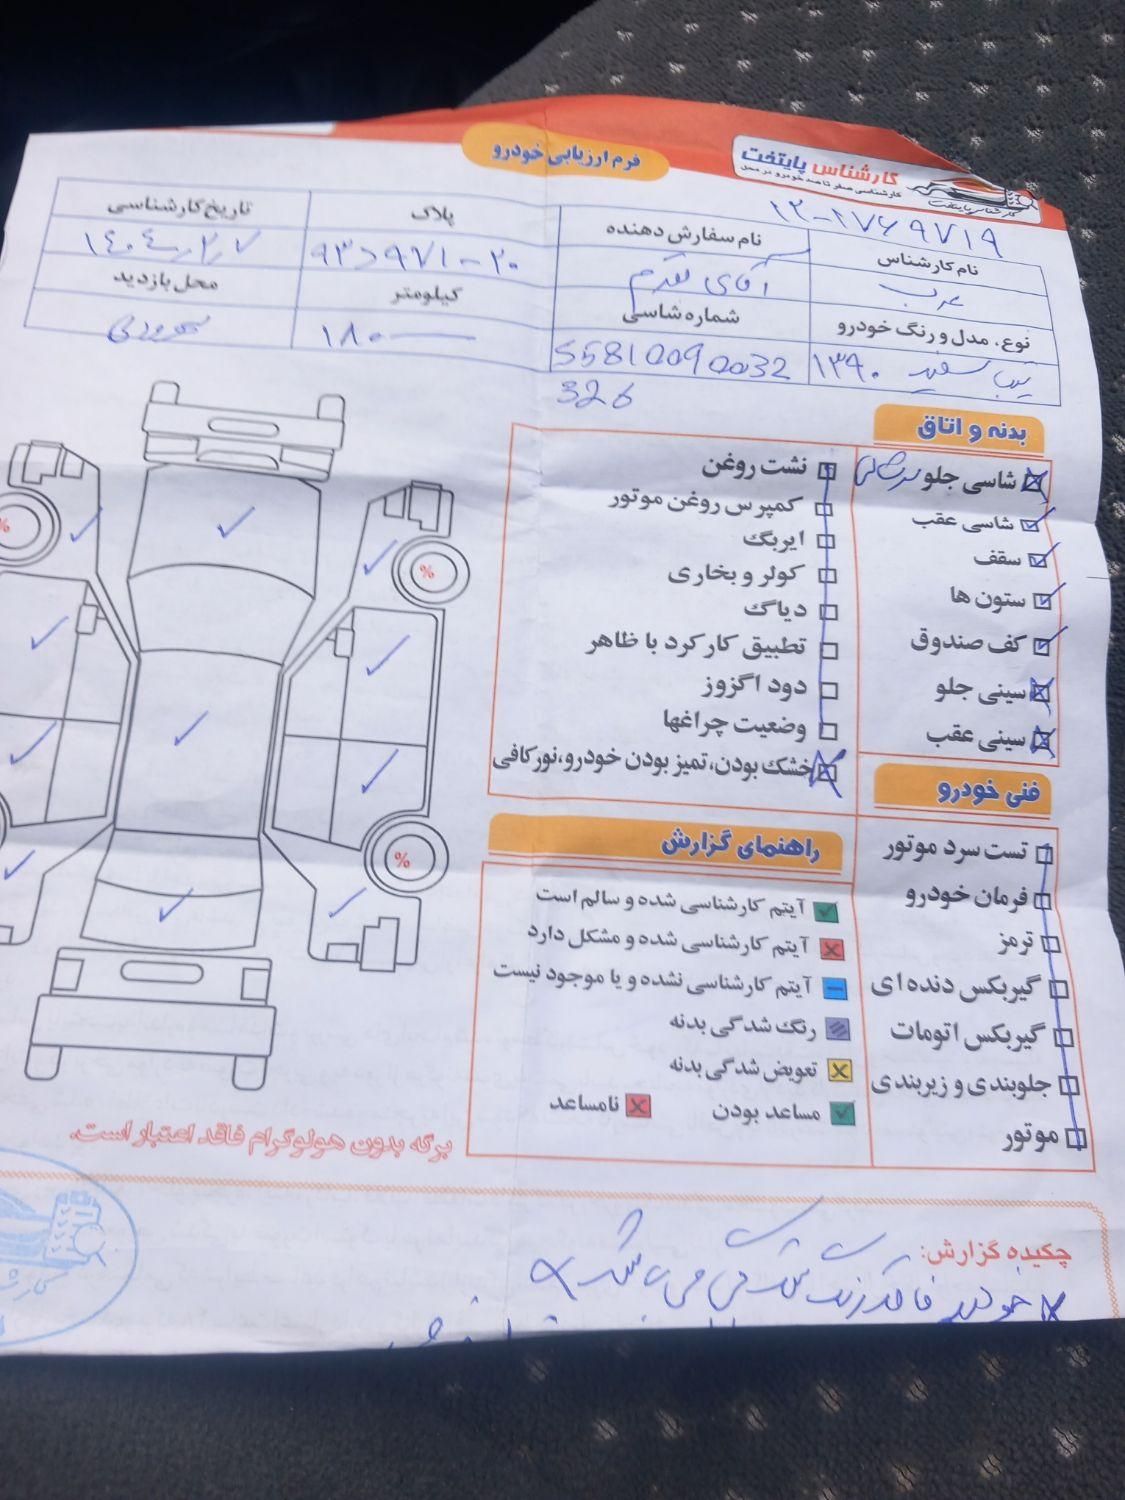 کارشناس پایتخت
کارشناسی صفر تا صد خودرو در محل
کارشناس پایتخت
فرم ارزیابی خودرو
۱۲-۲۷۶۹۷۱۹
نام کارشناس
عرب
نام سفارش دهنده
آقای مقدم
پلاک
۹۳د۹۷۱-۲۰
تاریخ کارشناسی
۱۴۰۴,۲,۷
نوع، مدل و رنگ خودرو
تیبا سفید ۱۳۹۰
شماره شاسی
S5810090032
326
کیلومتر
۱۸۰
محل بازدید
بدنه و اتاق
شاسی جلو
شاسی عقب
سقف
ستون ها
کف صندوق
سینی جلو
سینی عقب
نشت روغن
کمپرس روغن موتور
ایربگ
کولر و بخاری
دیاگ
تطبیق کارکرد با ظاهر
دود اگزوز
وضعیت چراغها
خشک بودن، تمیز بودن خودرو، نورکافی
فنی خودرو
تست سرد موتور
فرمان خودرو
ترمز
گیربکس دنده ای
گیربکس اتومات
جلوبندی و زیربندی
موتور
راهنمای گزارش
آیتم کارشناسی شده و سالم است
آیتم کارشناسی شده و مشکل دارد
آیتم کارشناسی نشده و یا موجود نیست
رنگ شدگی بدنه
تعویض شدگی بدنه
مساعد بودن
نامساعد
%
%
%
برگه بدون هولوگرام فاقد اعتبار است.
چکیده گزارش:
خودرو فاقد رنگ شدگی می باشد